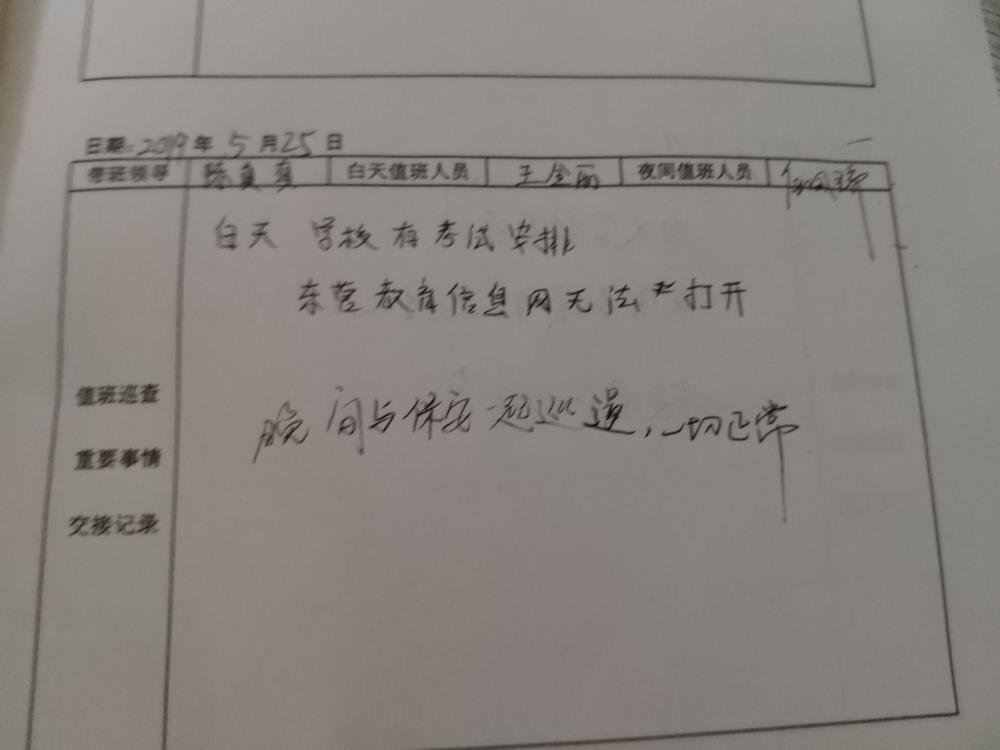 日期:2019年5月25日
带班领导 陈真真 白天值班人员 王金丽 夜间值班人员
白天 学校有考试安排
东营教育信息网无法打开
值班巡查
晚间与保安一起巡逻,一切正常
重要事情
交接记录